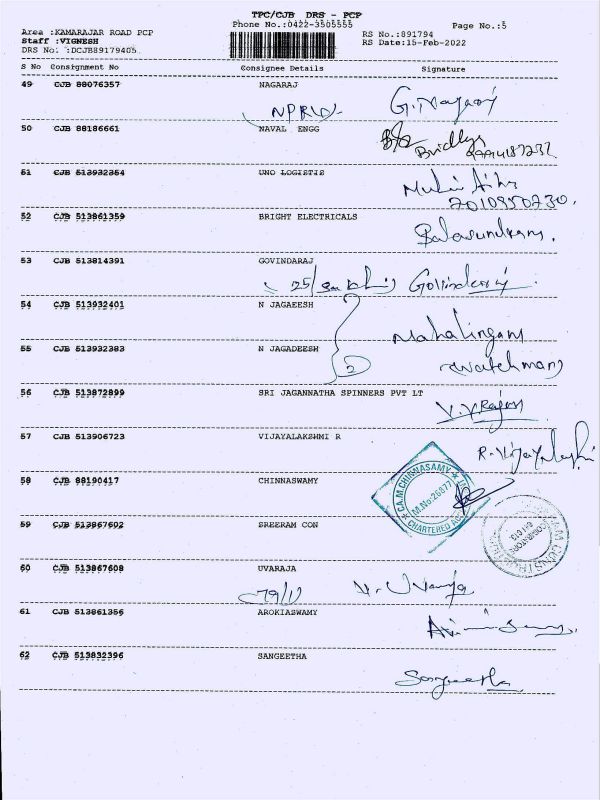 TPC/CJB DRS - PCP
Phone No.:0422-3505555
Page No.:5
Area :KAMARAJAR ROAD PCP
Staff :VIGNESH
DRS No. :DCJB89179405.
RS No.:891794
RS Date:15-Feb-2022
S No Consignment No Consignee Details Signature
49 CJB 88076357 NAGARAJ
G. Nagaraj
50 CJB 88186661 NAVAL ENGG
51 CJB 513932354 UNO LOGISTIS
7010950730.
52 CJB 513861359 BRIGHT ELECTRICALS
Balasundram.
53 CJB 513814391 GOVINDARAJ
Govindaraj
54 CJB 513932401 N JAGAEESH
Mahalingam
55 CJB 513932383 N JAGADEESH
2 watchman
56 CJB 513872899 SRI JAGANNATHA SPINNERS PVT LT
V.V Rajan
57 CJB 513906723 VIJAYALAKSHMI R
R. Vijayalakshmi
58 CJB 88190417 CHINNASWAMY
CA.M.CHINNASAMY
M.No:26877
CHARTERED
59 CJB 513867602 SREERAM CON
COIMBATORE
60 CJB 513867608 UVARAJA
79/1) V. Uvaraja
61 CJB 513861356 AROKIASWAMY
62 CJB 513832396 SANGEETHA
Sangeetha